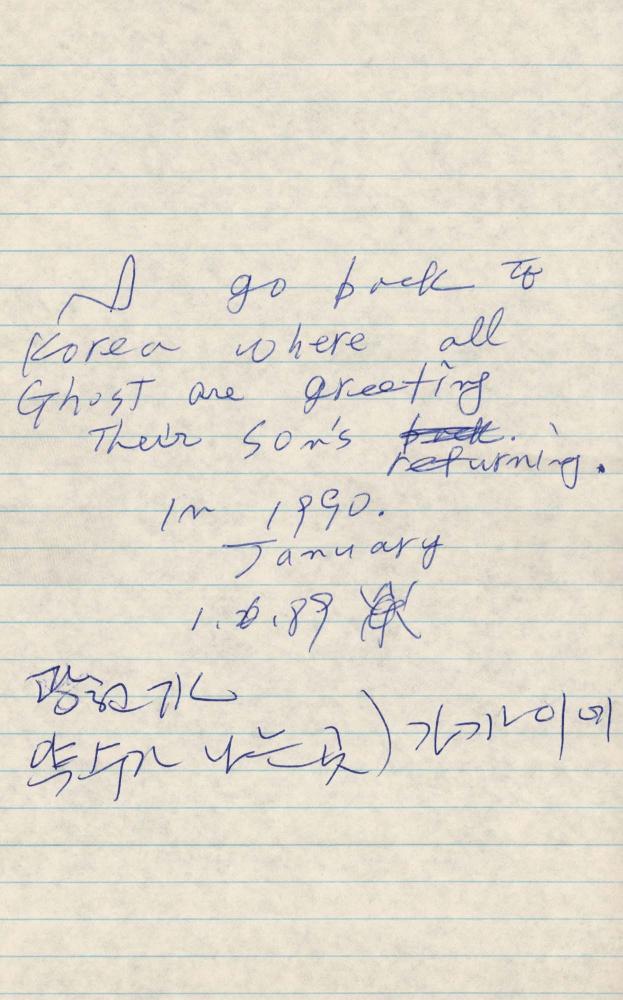 I go back to
Korea where all
Ghost are greeting
Their Son's
returning.
In 1990.
January
1. 8 . 89
약수가 나는 곳) 가까이에